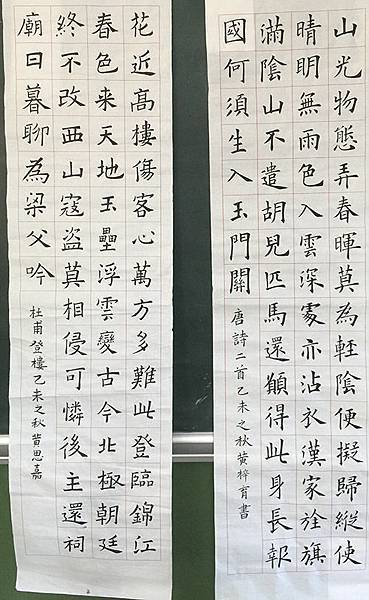 山光物態弄春暉莫為輕陰便擬歸縱使
晴明無雨色入雲深處亦沾衣漢家旌旗
滿陰山不遣胡兒匹馬還願得此身長報
國何須生入玉門關
唐詩二首乙未之秋黄梓育書
花近高樓傷客心萬方多難此登臨錦江
春色来天地玉壘浮雲變古今北極朝廷
終不改西山寇盜莫相侵可憐後主還祠
廟日暮聊為梁父吟
杜甫登樓乙未之秋黄思嘉